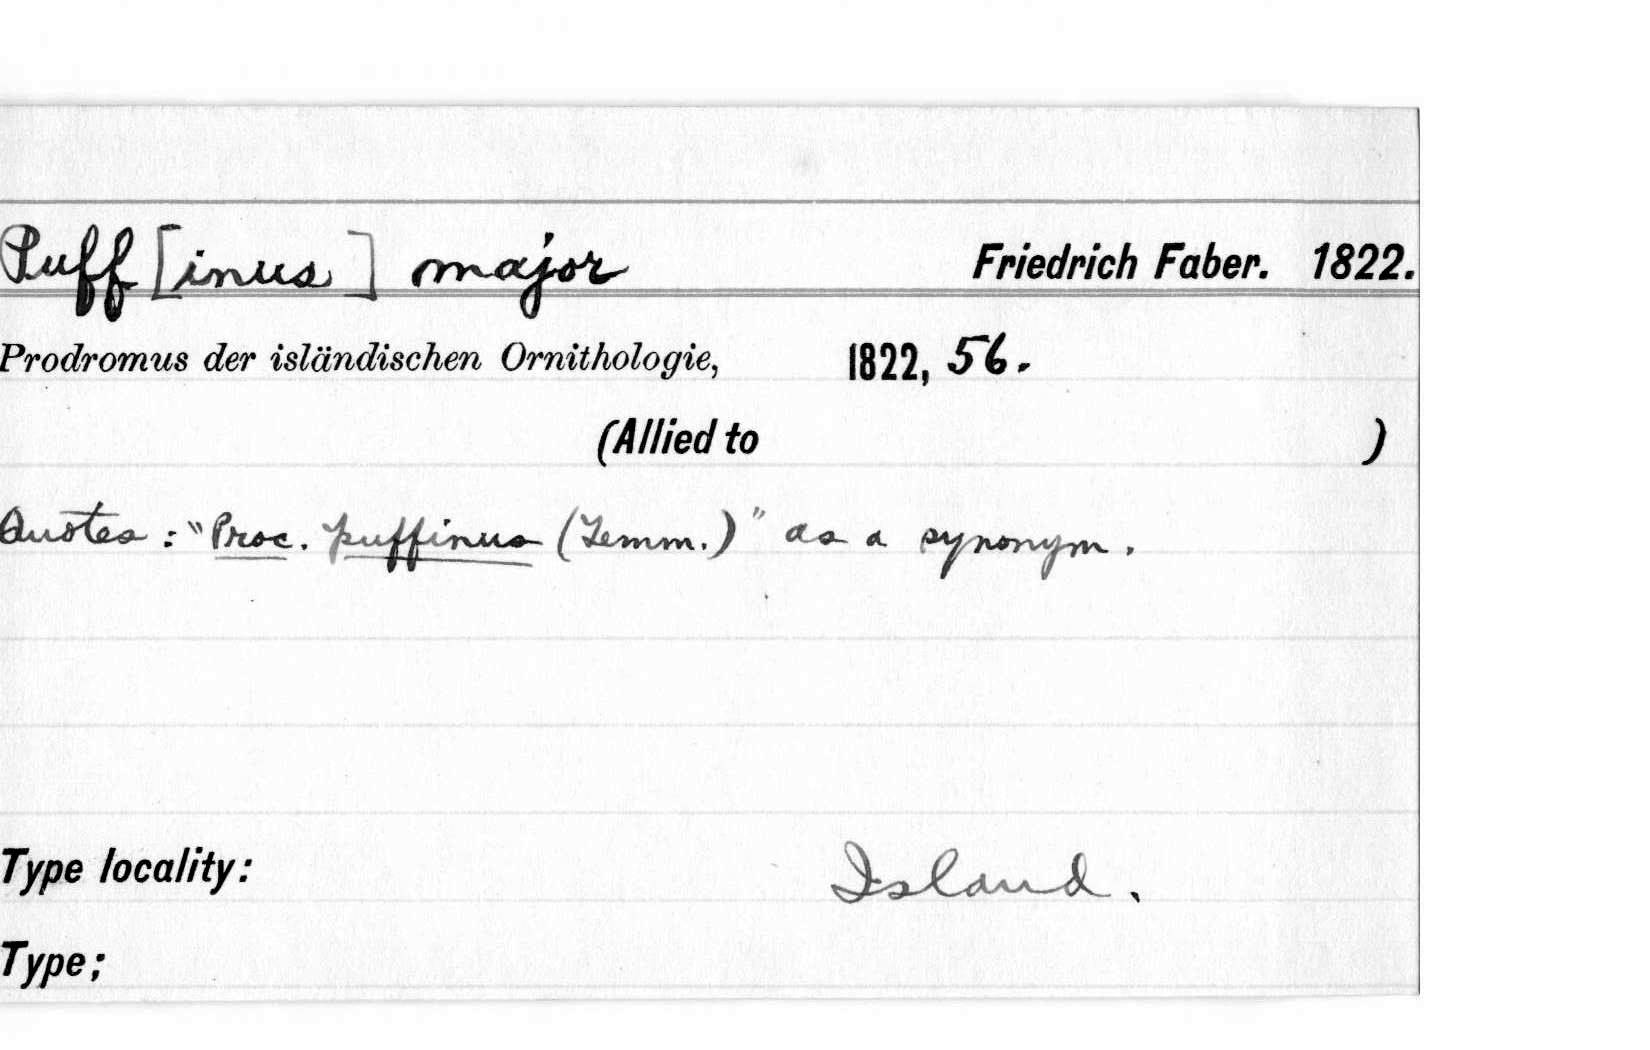 Puff[inus] major Friedrich Faber. 1822.
Prodromus der isländischen Ornithologie, 1822, 56.
(Allied to )
Quotes: "Proc. puffinus (Temm.)" as a synonym.
Type locality: Island.
Type;